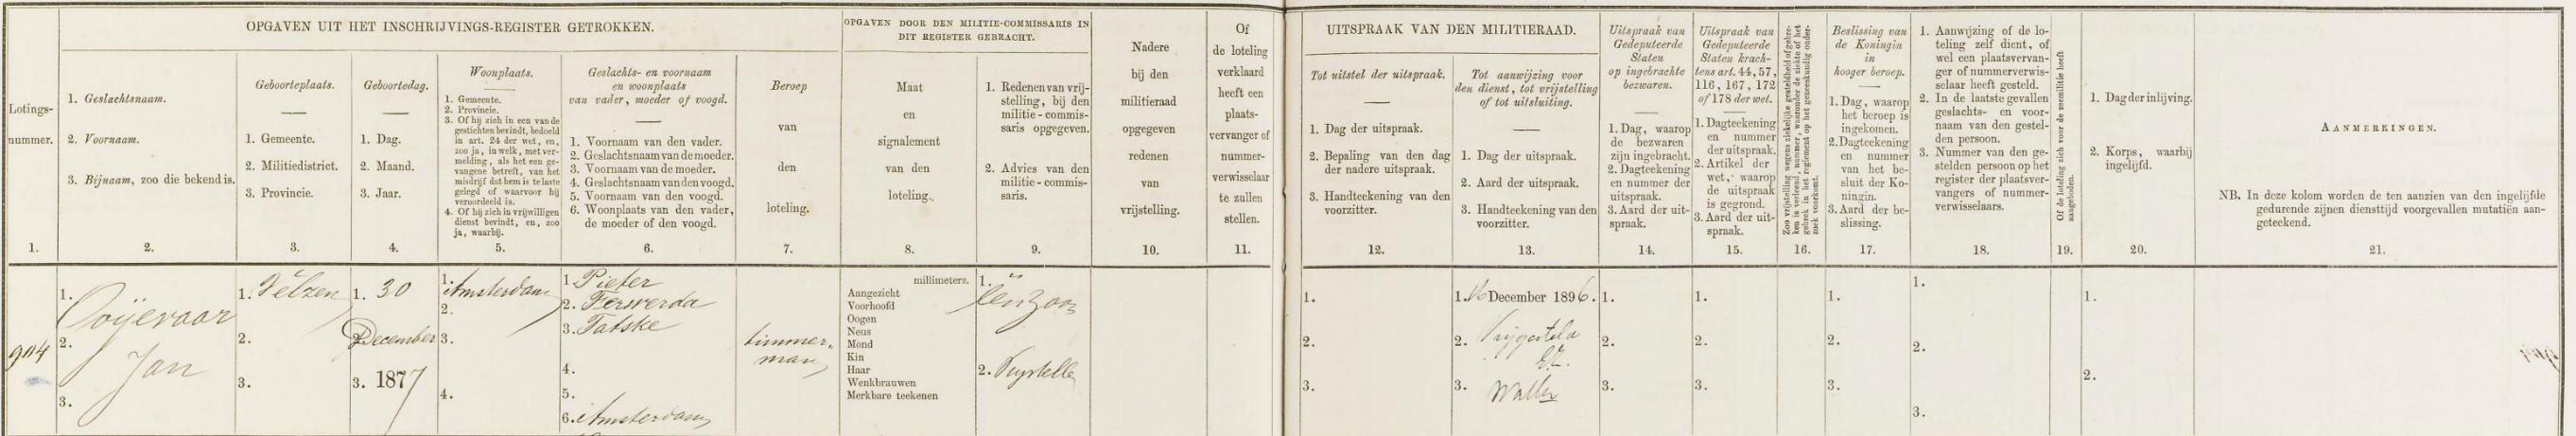 OPGAVEN UIT HET INSCHRIJVINGS-REGISTER GETROKKEN.
OPGAVEN DOOR DEN MILITIE-COMMISSARIS IN
DIT REGISTER GEBRACHT.
Lotings-
nummer.
1.
1. Geslachtsnaam.
2. Voornaam.
3. Bijnaam, zoo die bekend is.
2.
Geboorteplaats.
1. Gemeente.
2. Militiedistrict.
3. Provincie.
3.
Geboortedag.
1. Dag.
2. Maand.
3. Jaar.
4.
Woonplaats.
1. Gemeente.
2. Provincie.
3. Of hij zich in een van de
gestichten bevindt, bedoeld
in art. 24 der wet, en,
zoo ja, in welk, met ver-
melding, als het een ge-
vangene betreft, van het
misdrijf dat hem is te laste
gelegd of waarvoor hij
veroordeeld is.
4. Of hij zich in vrijwilligen
dienst bevindt, en, zoo
ja, waarbij.
5.
Geslachts- en voornaam
en woonplaats
van vader, moeder of voogd.
1. Voornaam van den vader.
2. Geslachtsnaam van de moeder.
3. Voornaam van de moeder.
4. Geslachtsnaam van den voogd.
5. Voornaam van den voogd.
6. Woonplaats van den vader,
de moeder of den voogd.
6.
Beroep
van
den
loteling.
7.
Maat
en
signalement
van den
loteling.
8.
1. Redenen van vrij-
stelling, bij den
militie-commis-
saris opgegeven.
2. Advies van den
militie-commis-
saris.
9.
Nadere
bij den
militieraad
opgegeven
redenen
van
vrijstelling.
10.
Of
de loteling
verklaard
heeft een
plaats-
vervanger of
nummer-
verwisselaar
te zullen
stellen.
11.
UITSPRAAK VAN DEN MILITIERAAD.
Tot uitstel der uitspraak.
1. Dag der uitspraak.
2. Bepaling van den dag
der nadere uitspraak.
3. Handteekening van den
voorzitter.
12.
Tot aanwijzing voor
den dienst, tot vrijstelling
of tot uitsluiting.
1. Dag der uitspraak.
2. Aard der uitspraak.
3. Handteekening van den
voorzitter.
13.
Uitspraak van
Gedeputeerde
Staten
op ingebrachte
bezwaren.
1. Dag, waarop
de bezwaren
zijn ingebracht.
2. Dagteekening
en nummer der
uitspraak.
3. Aard der uit-
spraak.
14.
Uitspraak van
Gedeputeerde
Staten krach-
tens art. 44, 57,
116, 167, 172
of 178 der wet.
1. Dagteekening
en nummer
der uitspraak.
2. Artikel der
wet, waarop
de uitspraak
is gegrond.
3. Aard der uit-
spraak.
15.
Zoo vrijstelling wegens ziekelijke gesteldheid of gebre-
ken is verleend, nummer, waaronder de ziekte of het
gebrek in het reglement op het geneeskundig onder-
zoek voorkomt.
16.
Beslissing van
de Koningin
in
hooger beroep.
1. Dag, waarop
het beroep is
ingekomen.
2. Dagteekening
en nummer
van het be-
sluit der Ko-
ningin.
3. Aard der be-
slissing.
17.
1. Aanwijzing of de lo-
teling zelf dient, of
wel een plaatsvervan-
ger of nummerverwis-
selaar heeft gesteld.
2. In de laatste gevallen
geslachts- en voor-
naam van den gestel-
den persoon.
3. Nummer van den ge-
stelden persoon op het
register der plaatsver-
vangers of nummer-
verwisselaars.
18.
Of de loteling zich voor de zeemilitie heeft
aangeboden.
19.
1. Dag der inlijving.
2. Korps, waarbij
ingelijfd.
20.
AANMERKINGEN.
NB. In deze kolom worden de ten aanzien van den ingelijfde
gedurende zijnen diensttijd voorgevallen mutatiën aan-
geteekend.
21.
904
1. Ooijevaar
2. Jan
3.
1. Velzen
2.
3.
1. 30
2. December
3. 1877
1. Amsterdam
2.
3.
4.
1. Pieter
2. Ferwerda
3. Tatske
4.
5.
6. Amsterdam
timmer-
man
millimeters.
Aangezicht
Voorhoofd
Oogen
Neus
Mond
Kin
Haar
Wenkbrauwen
Merkbare teekenen
1. Eén zoon
2.
1.
2.
3.
1. 16 December 1896.
2.
3.
1.
2.
3.
1.
2.
3.
1.
2.
3.
1.
2.
3.
1.
2.